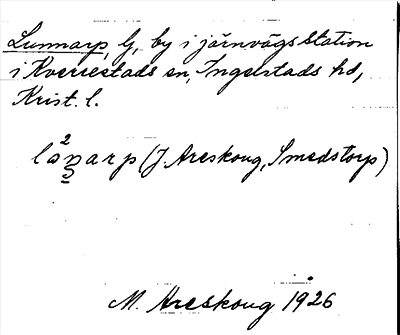 Lunnarp, G, by i järnvägsstation
i Kverrestads sn, Ingelstads hd,
Krist. l.
lànarp (J Areskoug, Smedstorp)
2
M. Areskoug 1926